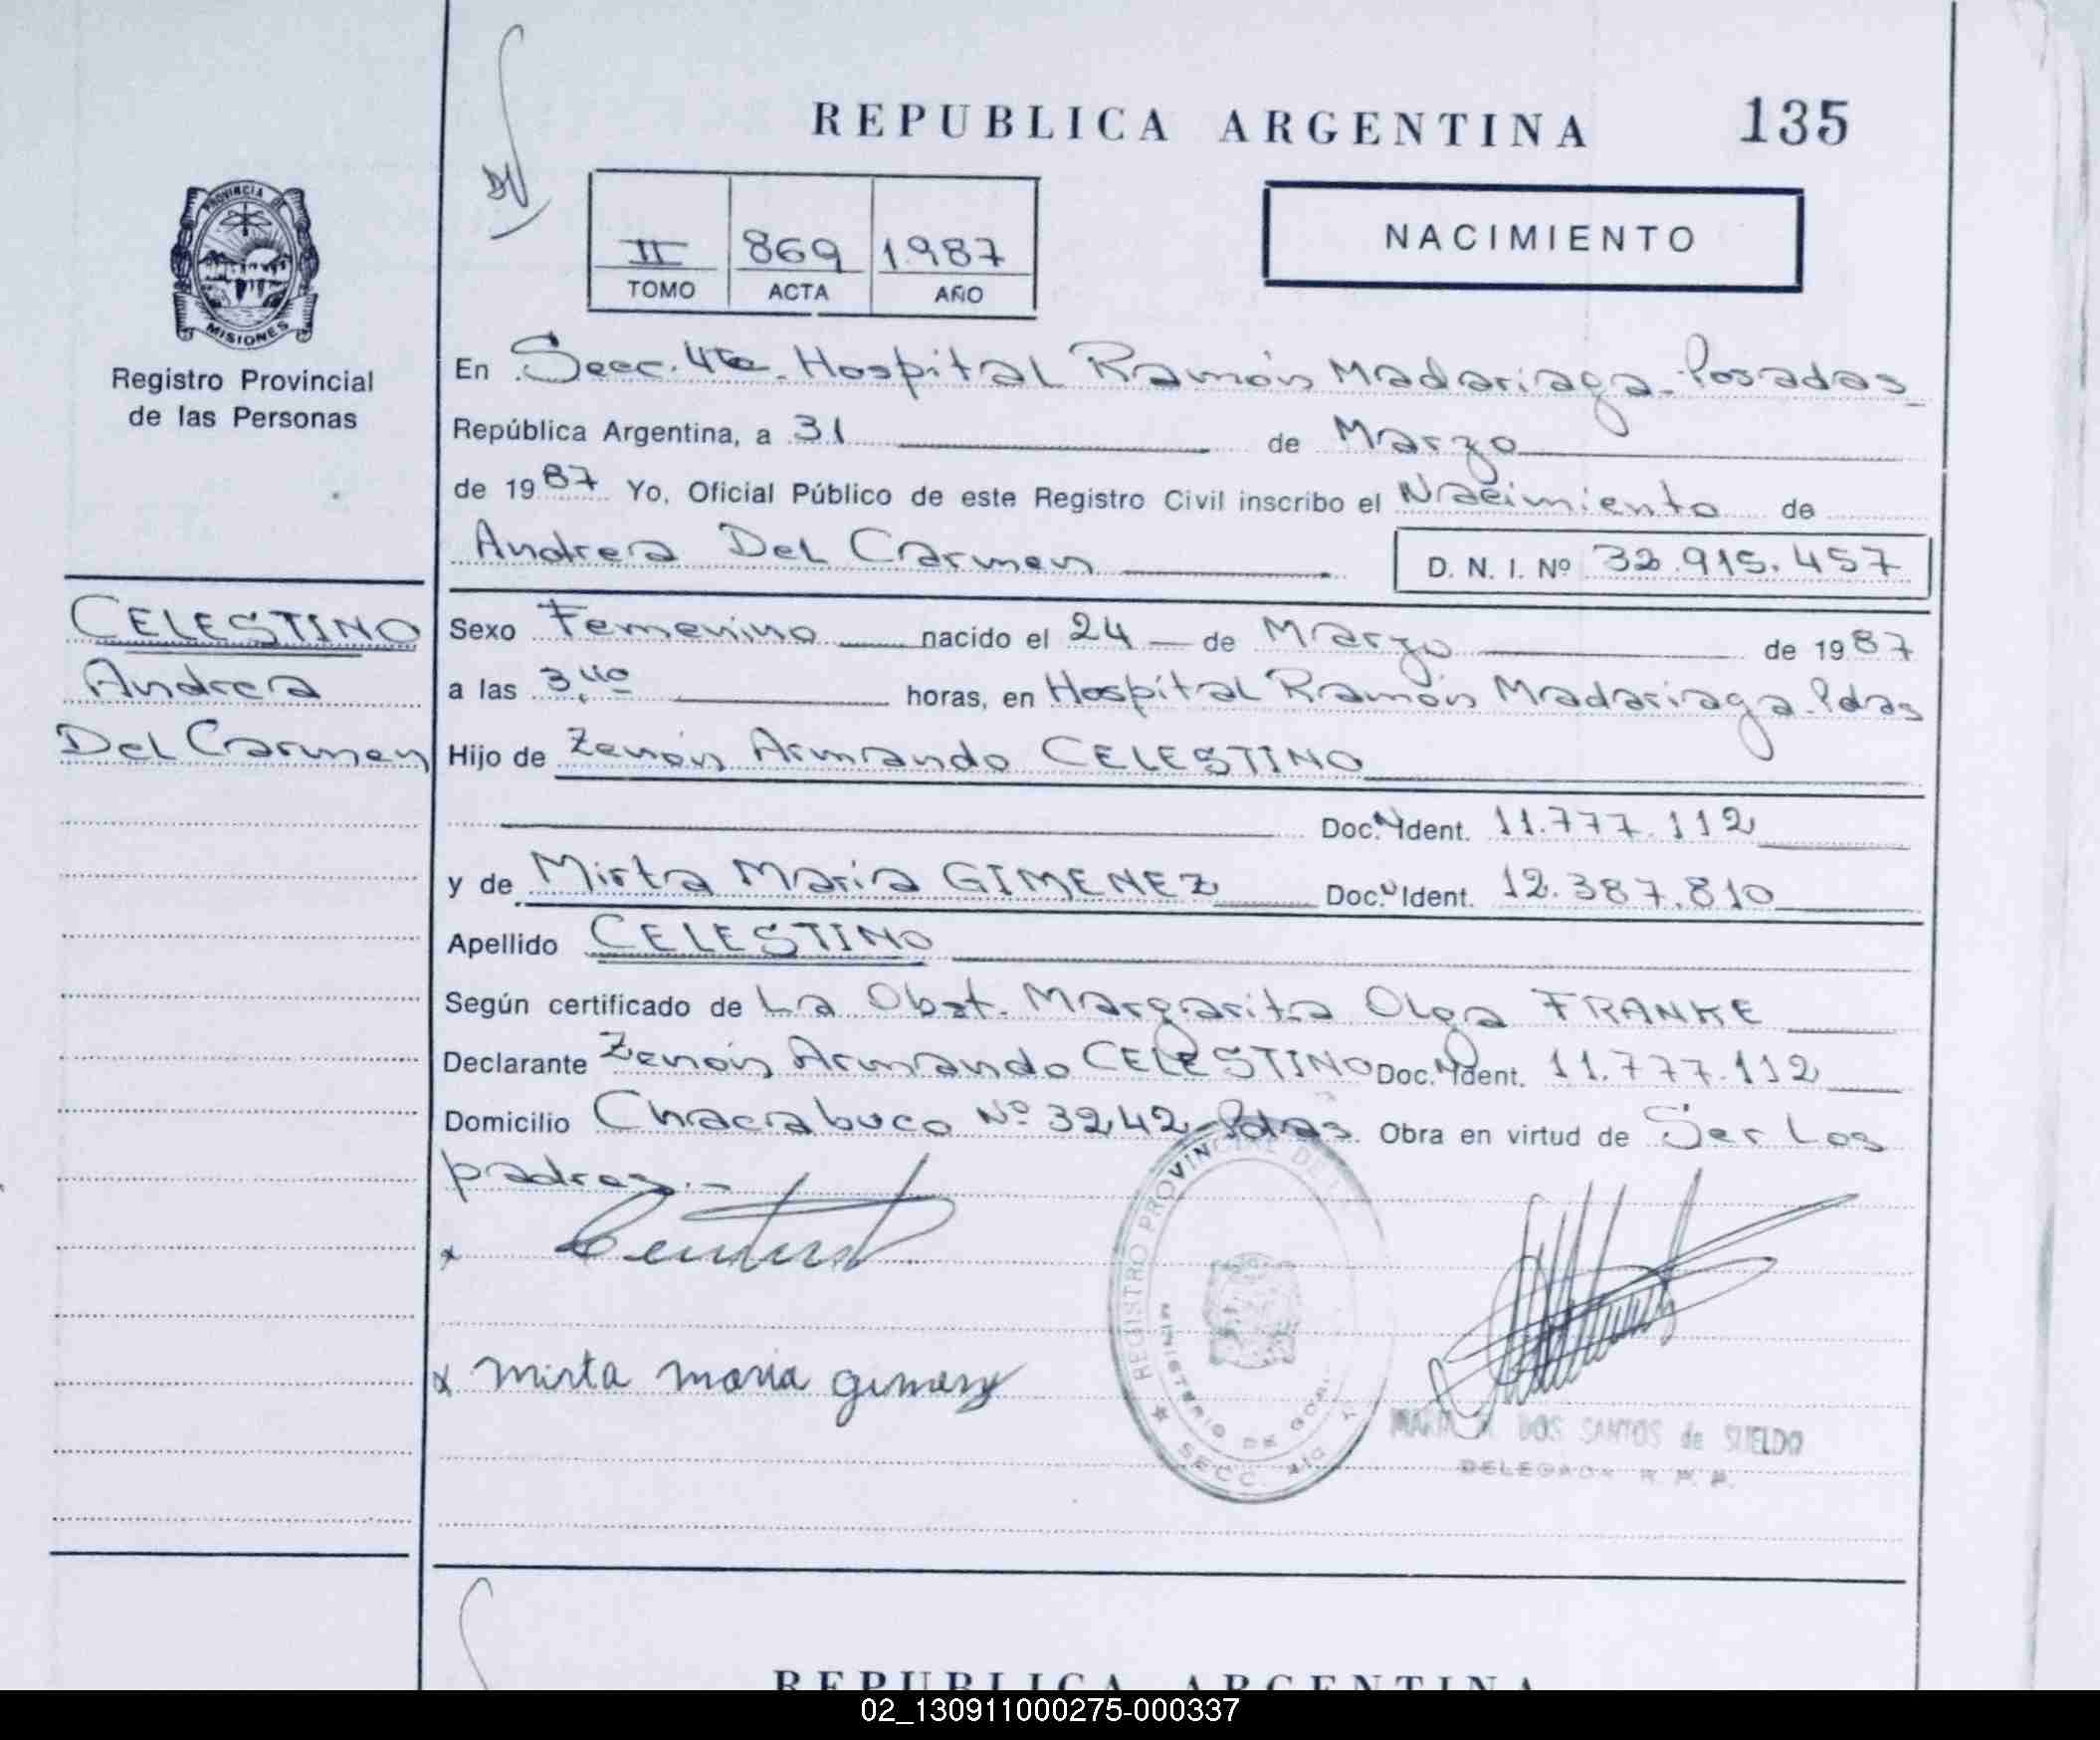 REPUBLICA ARGENTINA 135
II 869 1987
TOMO ACTA AÑO
NACIMIENTO
PROVINCIA DE
MISIONES
Registro Provincial
de las Personas
CELESTINO
Andrea
Del Carmen
En Secc. 4ta. Hospital Ramón Madariaga - Posadas
República Argentina, a 31 de Marzo
de 1987 Yo, Oficial Público de este Registro Civil inscribo el Nacimiento de
Andrea Del Carmen D. N. I. Nº 32.915.457
Sexo Femenino nacido el 24 de Marzo de 1987
a las 3,40 horas, en Hospital Ramón Madariaga - Pdas
Hijo de Zenón Armando CELESTINO
Doc. Ident. 11.777.112
y de Mirta María GIMENEZ Doc. Ident. 12.387.810
Apellido CELESTINO
Según certificado de La Obst. Margarita Olga FRANKE
Declarante Zenón Armando CELESTINO Doc. Ident. 11.777.112
Domicilio Chacabuco Nº 3242 - Pdas. Obra en virtud de Ser Los
padres.-
x
x Mirta maria gimenez
REGISTRO PROVINCIAL DE
MINISTERIO DE GOB.
SECC.
MARIA DOS SANTOS de SUELDO
DELEGADA R. P. P.
REPUBLICA ARGENTINA
02_130911000275-000337